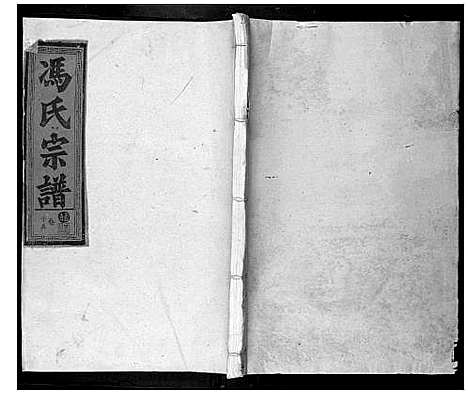 馮氏宗譜
卷